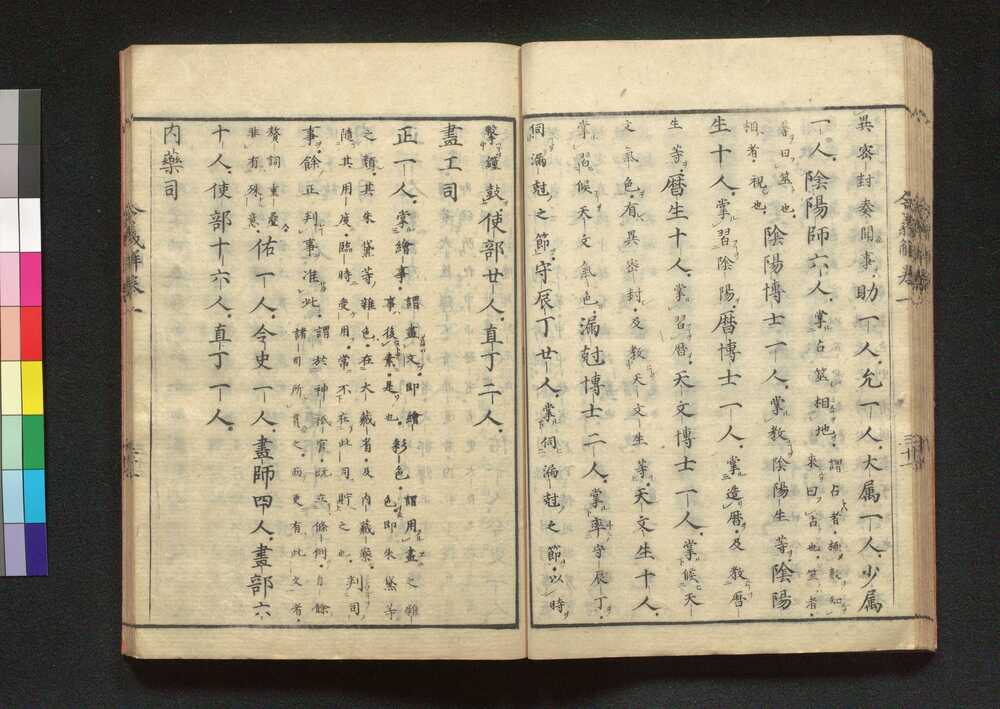 異密封奏聞事助一人允一人大属一人少属
一人陰陽師六人掌占筮相地謂占者極数知
来曰占也筮者
蓍曰筮也
相者視也陰陽博士一人掌教陰陽生等陰陽
生十人掌習陰陽暦博士一人掌造暦及教暦
生等暦生十人掌習暦天文博士一人掌候天
文氣色有異密封及教天文生等天文生十人
掌習候天文氣色漏尅博士二人掌率守辰丁
伺漏尅之節守辰丁廿人掌伺漏尅之節以時
撃鐘鼓使部廿人直丁二人
畫工司
正一人掌繪事謂畫文即繪
事後素是也彩色謂用畫之雑
色即朱黛等
之類其朱黛等雜色在大蔵省及内蔵寮
隨其用度臨時受用常不在此司貯之也判司
事餘正判事准此謂於神祇官既立條例自餘
諸司所貴之而更有此文者
贅詞重疊
非有殊意佑一人令史一人畫師四人畫部六
十人使部十六人直丁一人
内藥司
令義解巻一